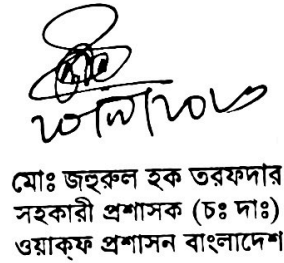 মোঃ জহুরুল হক তরফদার
সহকারী প্রশাসক (চঃ দাঃ)
ওয়াক্ফ প্রশাসন বাংলাদেশ